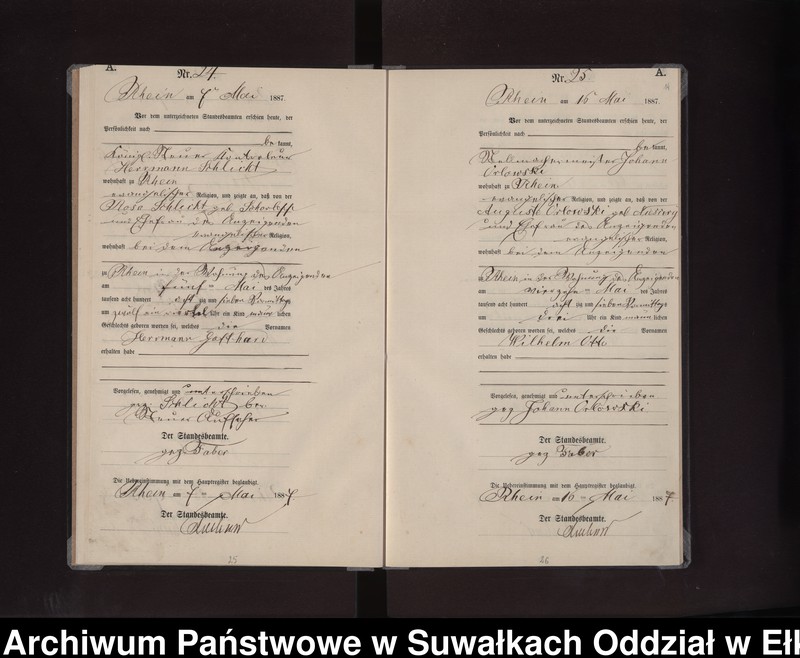 A.
Nr. 24.
Rhein am 7ten Mai 1887.
Vor dem unterzeichneten Standesbeamten erschien heute, der
Persönlichkeit nach
bekannt,
Königl. Steuer
Herrmann Schlicht
wohnhaft zu Rhein
evangelischer Religion, und zeigte an, daß von der
Rosa Schlicht geb.
und Ehefrau des Anzeigenden
evangelischer Religion,
wohnhaft bei dem Anzeigenden
zu Rhein in der Wohnung des Anzeigenden
am fünf Mai des Jahres
tausend acht hundert acht zig und sieben Vormittags
um zwölf ein viertel Uhr ein Kind männlichen
Geschlechts geboren worden sei, welches die Vornamen
Herrmann Gotthard
erhalten habe
Vorgelesen, genehmigt und unterschrieben
gez. Schlicht
Steuer Aufseher
Der Standesbeamte.
gez Faber
Die Uebereinstimmung mit dem Hauptregister beglaubigt.
Rhein am 7ten Mai 1887
Der Standesbeamte.
25
Nr. 25
A.
Rhein am 16 Mai 1887.
Vor dem unterzeichneten Standesbeamten erschien heute, der
Persönlichkeit nach
bekannt,
Stellmachermeister Johann
Orlowski
wohnhaft zu Rhein
evangelischer Religion, und zeigte an, daß von der
Auguste Orlowski geb
und Ehefrau des Anzeigenden
evangelischer Religion,
wohnhaft bei dem Anzeigenden
zu Rhein in der Wohnung des Anzeigenden
am vierzehn Mai des Jahres
tausend acht hundert acht zig und sieben Vormittags
um drei Uhr ein Kind männlichen
Geschlechts geboren worden sei, welches die Vornamen
Wilhelm Otto
erhalten habe
Vorgelesen, genehmigt und unterschrieben
gez Johann Orlowski
Der Standesbeamte.
gez Faber
Die Uebereinstimmung mit dem Hauptregister beglaubigt.
Rhein am 16 Mai 1887
Der Standesbeamte.
26
Archiwum Państwowe w Suwałkach Oddział w Ełk